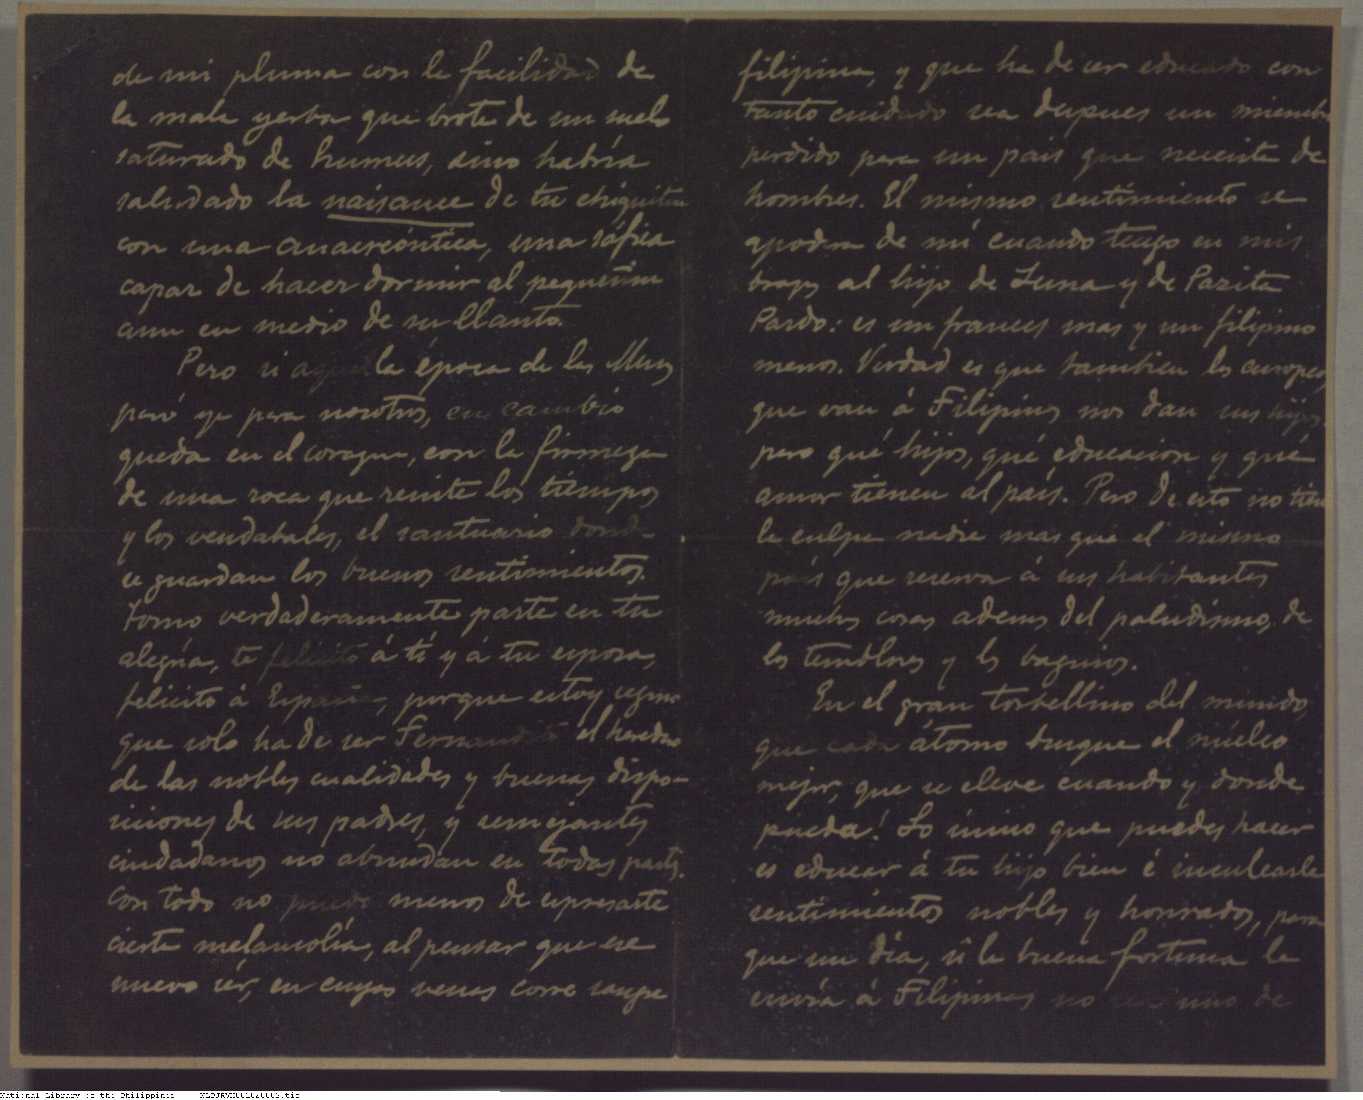 de mi pluma con la facilidad de
la mala yerba que brota de un suelo
saturado de humus, sino habría
saludado la naisance de tu chiquitin
con una anacreóntica, una sáfica
capaz de hacer dormir al pequeñin
aun en medio de su llanto.
Pero si aquella época de las Musas
pasó ya para nosotros, en cambio
queda en el corazon, con la firmeza
de una roca que resiste los tiempos
y los vendabales, el santuario donde
se guardan los buenos sentimientos.
Tomo verdaderamente parte en tu
alegría, te felicito á tí y á tu esposa,
felicito á España, porque estoy seguro
que solo ha de ser Fernandito el heredero
de las nobles cualidades y buenas dispo-
siciones de sus padres, y semejantes
ciudadanos no abundan en todas partes.
Con todo no puedo menos de expresarte
cierta melancolía, al pensar que ese
nuevo sér, en cuyas venas corre sangre
filipina, y que ha de ser educado con
tanto cuidado sea despues un miembro
perdido para un pais que necesita de
hombres. El mismo sentimiento se
apodera de mí cuando tengo en mis
brazos al hijo de Luna y de Pazita
Pardo: es un frances mas y un filipino
menos. Verdad es que tambien los europeos
que van á Filipinas nos dan sus hijos,
pero qué hijos, qué educacion y qué
amor tienen al país. Pero de esto no tiene
la culpa nadie mas que el mismo
país que reserva á sus habitantes
muchas cosas ademas del paludismo, de
los temblores y los baguios.
En el gran torbellino del mundo,
que cada átomo busque el núcleo
mejor, que se eleve cuando y donde
pueda! Lo único que puedes hacer
es educar á tu hijo bien é inculcarle
sentimientos nobles y honrados, para
que un día, si la buena fortuna le
envía á Filipinas no sea uno de
National Library of the Philippines